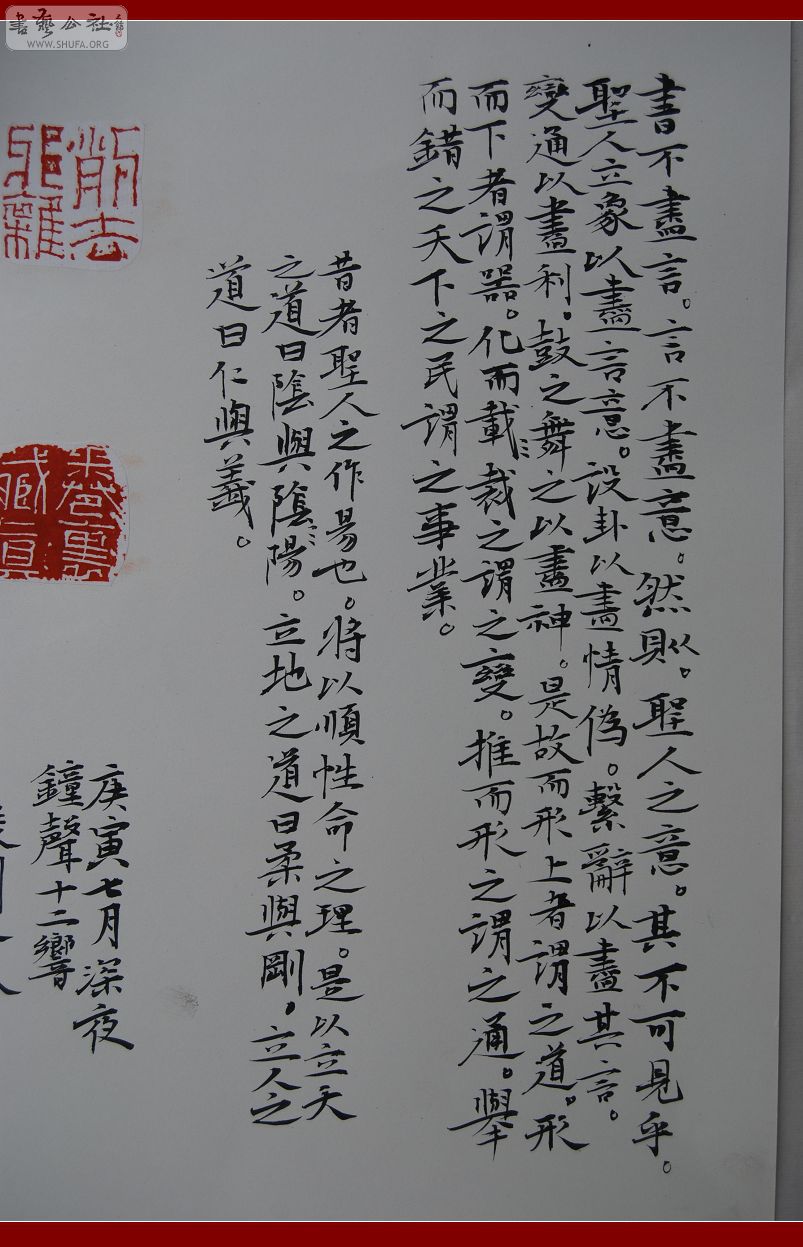 書不盡言。言不盡意。然則。聖人之意。其不可見乎。
聖人立象以盡言意。設卦以盡情偽。繫辭以盡其言。
變通以盡利。鼓之舞之以盡神。是故而形上者謂之道。形
而下者謂器。化而載裁之謂之變。推而形之謂之通。舉
而錯之天下之民謂之事業。
昔者聖人之作易也。將以順性命之理。是以立天
之道曰陰與陰陽。立地之道曰柔與剛。立人之
道曰仁與義。
庚寅七月深夜
鐘聲十二響
書藝公社
WWW.SHUFA.ORG